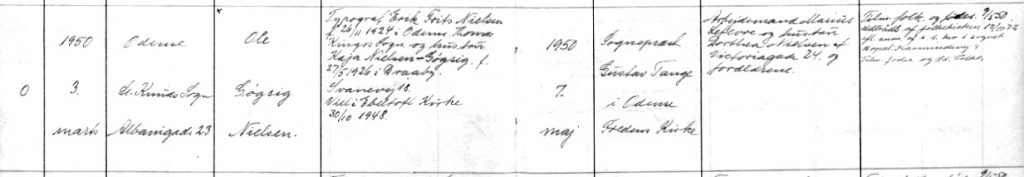 0
1950
3.
marts
Odense
St. Knuds Sogn
Albanigade 23
Ole
Gøgsig
Nielsen.
Typograf Erik Frits Nielsen
f. 26/11 1924 i Odense Thomas
Kingos Sogn og hustru
Kaja Nielsen-Gøgsig f.
27/5 1926 i Draaby.
Svanevej 18.
Viet i Ebeltoft Kirke
30/10 1948.
1950
7.
maj
Sognepræst
Gustav Tange
i Odense
Fredens Kirke
Arbejdsmand Marius
og hustru
Dorthea Nielsen af
Victoriagade 24. og
forældrene.
Tilm. folk. og 9/5 50.
Udtraadt af folkekirken